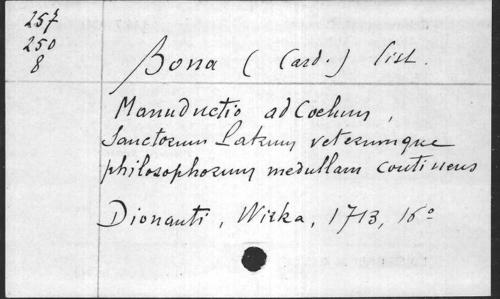 257
250
8
Bona (Card.) Cist.
Manuductio ad Coelum,
Sanctorum Patrum veterumque
philosophorum medullam continens
Dionanti, Wirka, 1713, 16°